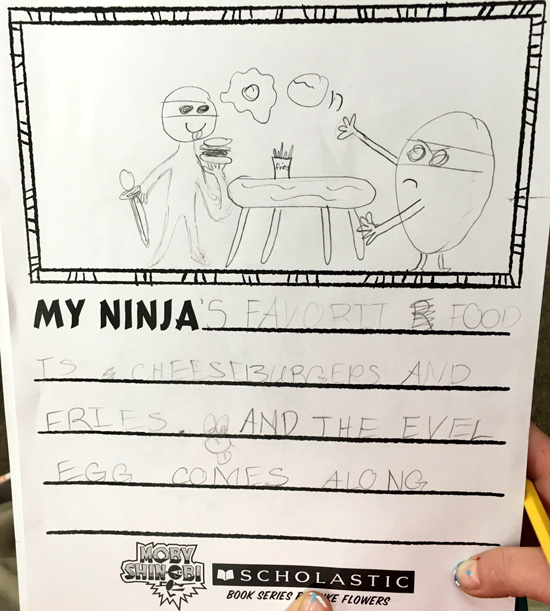 Fries
MY NINJA'S FAVORTT FOOD
IS CHEESEBURGERS AND
FRIES. AND THE EVEL
EGG COMES ALONG
MOBY
SHINOBI
SCHOLASTIC
BOOK SERIES BY LUKE FLOWERS